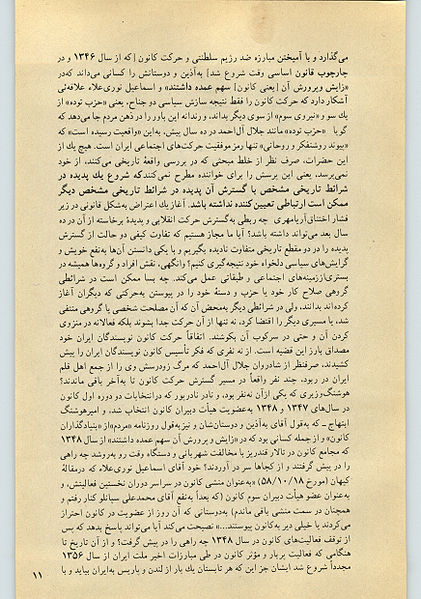 می‌گذارد و با آمیختن مبارزه ضد رژیم سلطنتی و حرکت کانون [که از سال ۱۳۴۶ و در
چارچوب قانون اساسی وقت شروع شد] به‌آذین و دوستانش را کسانی می‌داند که«در
«زایش و پرورش آن [یعنی کانون] سهم عمده داشتند» و اسماعیل نوری‌علاء علاقه‌ئی
آشکار دارد که حرکت کانون را فقط نتیجه سازش سیاسی دو جناح، یعنی «حزب توده» از
یک سو و «نیروی سوم» از سوی دیگر بداند، و رندانه این باور را در ذهن مردم جا می‌دهد که
گویا «حزب توده» مانند جلال آل‌احمد در ده سال پیش، به‌این «واقعیت رسیده است» که
«پیوند روشنفکر و روحانی» تنها رمز موفقیت حرکت‌های اجتماعی ایران است. هیچ یک از
این حضرات، صرف نظر از خلط مبحثی که در بررسی واقعهٔ تاریخی می‌کنند، از خود
نمی‌پرسد، یعنی این پرسش را برای خواننده مطرح نمی‌کند که شروع یک پدیده در
شرائط تاریخی مشخص با گسترش آن پدیده در شرائط تاریخی مشخص دیگر
ممکن است ارتباطی تعیین کننده نداشته باشد. آغاز یک اعتراض به‌شکل قانونی در زیر
فشار اختناق آریامهری چه ربطی به‌گسترش حرکت انقلابی و پدیدهٔ برخاسته از آن در ده
سال بعد می‌تواند داشته باشد؟ آیا ما مجاز هستیم که تفاوت کیفی دو حالت از گسترش
پدیده را در دو مقطع تاریخی متفاوت نادیده بگیریم و با یکی دانستن آن‌ها به‌نفع خویش و
گرایش‌های سیاسی دلخواه خود نتیجه‌گیری کنیم؟ وانگهی، نقش افراد و گروه‌ها همیشه در
بستری از زمینه‌های اجتماعی و طبقاتی عمل می‌کند. چه بسا ممکن است در شرائطی
گروهی صلاح کار خود یا حزب و دستهٔ خود را در پیوستن به‌حرکتی که دیگران آغاز
کرده‌اند بدانند، ولی در شرائطی دیگر به‌محض آن که آن مصلحت شخصی یا گروهی منتفی
شد، یا مسیری دیگر را اقتضا کرد، نه تنها از آن حرکت جدا بشوند بلکه فعالانه در منزوی
کردن آن و حتی در سرکوب آن بکوشند. اتفاقاً حرکت کانون نویسندگان ایران خود
مصداق بارز این قضیه است. از نه نفری که فکر تأسیس کانون نویسندگان ایران را پیش
کشیدند، صرفنظر از شادروان جلال آل‌احمد که مرگ زودرسش وی را از جمع اهل قلم
ایران در ربود، چند نفر واقعاً در مسیر گسترش حرکت کانون تا به‌آخر باقی ماندند؟
هوشنگ وزیری که یکی از آن نه‌نفر بود، و نادر نادرپور که در انتخابات دو دوره اول کانون
در سال‌های ۱۳۴۷ و ۱۳۴۸ به‌عضویت هیأت دبیران کانون انتخاب شد، و امیرهوشنگ
ابتهاج - که به‌قول آقای به‌آذین و دوستان‌شان و نیز به‌قول روزنامه «مردم» از «بنیادگذاران
کانون» و از جمله کسانی بود که در «زایش و پرورش آن سهم عمده داشتند» از سال ۱۳۴۸
که مجامع کانون در تالار قندریز با مخالفت شهربانی و دستگاه وقت رو به‌روشد چه راهی
را در پیش گرفتند و از کجاها سر در آوردند؟ خود آقای اسماعیل نوری‌علاء که در مقالهٔ
کیهان (مورخ ۵۸/۱۰/۱۸) «به‌عنوان منشی کانون در سراسر دوران نخستین فعالیتش، و
به‌عنوان عضو هیأت دبیران سوم کانون (که بعداً به‌نفع آقای محمدعلی سپانلو کنار رفتم و
همچنان در سمت منشی باقی ماندم) به‌دوستانی که آن روز از عضویت در کانون احتراز
می‌کردند یا خیلی دیر به‌کانون پیوستند...» نصیحت می‌کند آیا می‌تواند پاسخ بدهد که پس
از توقف فعالیت‌های کانون در سال ۱۳۴۸ چه راهی را در پیش گرفت؟ و از آن تاریخ تا
هنگامی که فعالیت پربار و مؤثر کانون در طی مبارزات اخیر ملت ایران از سال ۱۳۵۶
مجدداً شروع شد ایشان جز این که هر تابستان یک بار از لندن و پاریس به‌ایران بیاید و با
۱۱